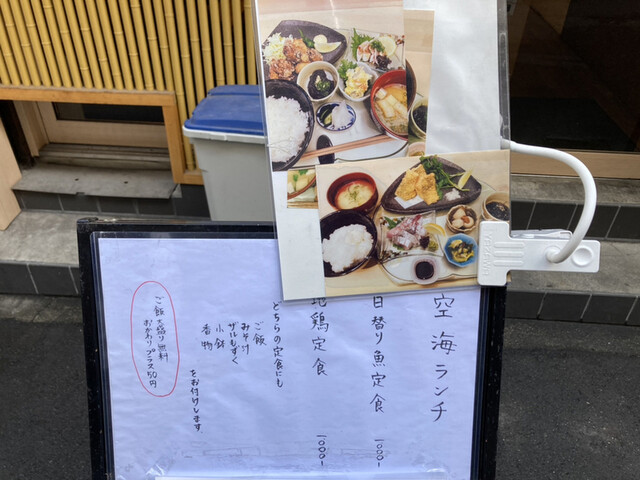 空海ランチ
日替り魚定食 1000-
地鶏定食 1000-
どちらの定食にも
ご飯
みそ汁
ザルもずく
小鉢
香物
をお付けします
ご飯大盛り無料
おかわりプラス50円